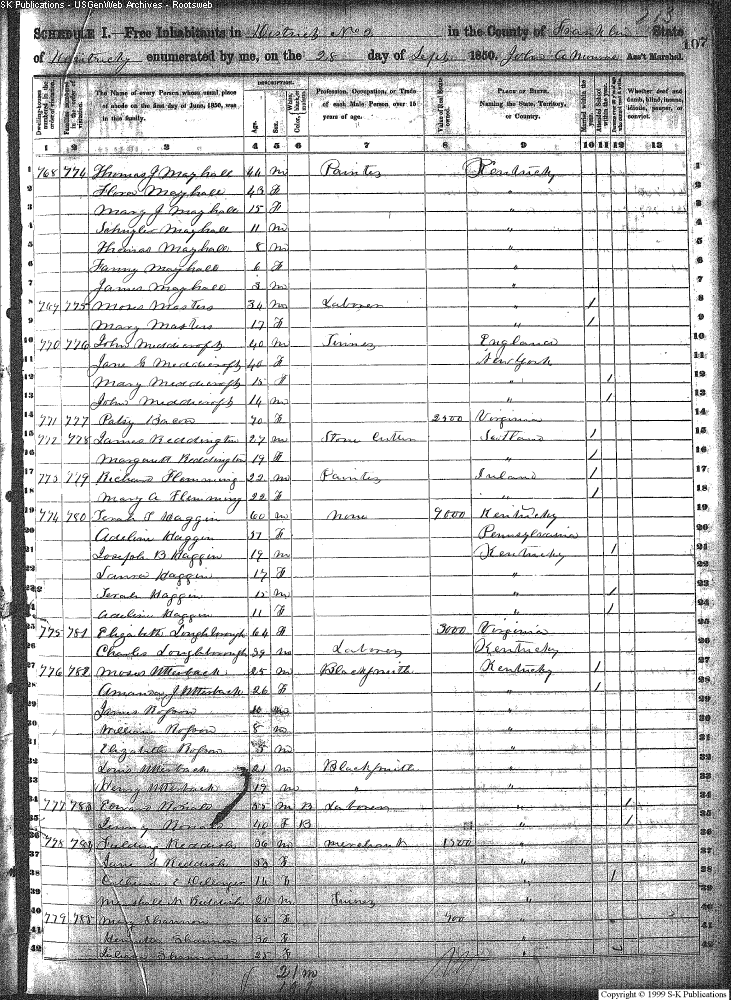 SK Publications - USGenWeb Archives - Rootsweb
213
SCHEDULE I.—Free Inhabitants in District No 2 in the County of Franklin State
of Kentucky enumerated by me, on the 28 day of Sept 1850. John A Monroe Ass't Marshal. 107
DESCRIPTION.
Dwelling-houses numbered in the order of visitation. Families numbered in the order of visitation. The Name of every Person whose usual place of abode on the first day of June, 1850, was in this family. Age. Sex. Color, Profession, Occupation, or Trade of each Male Person over 15 years of age. Value of Real Estate owned. PLACE OF BIRTH. Naming the State, Territory, or Country. Married within the year. Attended School within the year. Whether deaf and dumb, blind, insane, idiotic, pauper, or convict.
1 2 3 4 5 6 7 8 9 10 11 12 13
1 768 774 Thomas J Mayhall 44 m Painter Kentucky 1
2 Flora Mayhall 43 F " 2
3 Mary J Mayhall 15 F " 3
4 Mayhall 11 m " 4
5 Thomas Mayhall 8 m " 5
6 Fanny Mayhall 6 F " 6
7 James Mayhall 3 m " 7
8 769 775 Moses Masters 34 m Laborer " / 8
9 Mary Masters 17 F " / 9
10 770 776 John Meddicroft 40 m Tinner England 10
11 Jane G Meddicroft 40 F New York 11
12 Mary Meddicroft 15 F " / 12
13 John Meddicroft 14 m " / 13
14 771 777 Patsy Bacon 70 F 2500 Virginia 14
15 772 778 James Reddington 27 m Stone Cutter Scotland / 15
16 Margarett Reddington 19 F " / 16
17 773 779 Richard Flemming 22 m Painter Ireland / 17
18 Mary A Flemming 22 F " / 18
19 774 780 Terah T Haggin 60 m none 9000 Kentucky 19
20 Adeline Haggin 37 F Pennsylvania 20
21 Joseph B Haggin 19 m Kentucky / 21
22 Laura Haggin 17 F " 22
23 Terah Haggin 15 m " / 23
24 Adeline Haggin 11 F " / 24
25 775 781 Elizabeth Loughborough 64 F 3000 Virginia 25
26 Charles Loughborough 39 m Laborer Kentucky 26
27 776 782 Moses Utterback 25 m Blacksmith Kentucky / 27
28 Amanda J Utterback 26 F " / 28
29 James Robson 10 m " 29
30 William Robson 8 m " 30
31 Elizabeth Robson 5 m " 31
32 Louis Utterback 21 m Blacksmith " 32
33 Henry Utterback 19 m " " 33
34 777 783 Edward 55 m B Laborer " / 34
35 Jenny 40 F B " / 35
36 778 784 Fielding Reddish 36 m merchant 1500 " 36
37 Jane Reddish 33 F " 37
38 Catherine C 14 F " / 38
39 Marshall N Reddish 20 m Tinner " 39
40 779 785 Shannon 65 F 700 " 40
41 Henrietta Shannon 30 F " 41
42 Shannon 25 F " 42
21 m
Copyright © 1999 S-K Publications